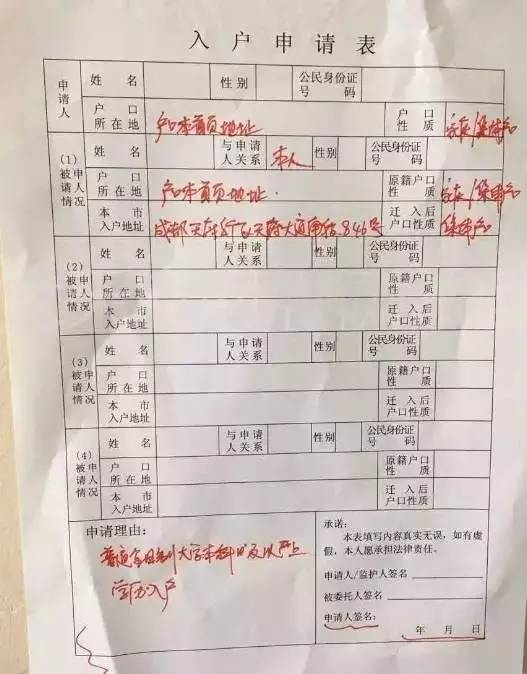 入户申请表
申请人 姓名 性别 公民身份证号码
户口所在地 户口本首页地址 户口性质 家庭/集体户
(1)被申请人情况 姓名 与申请人关系 本人 性别 公民身份证号码
户口所在地 户口本首页地址. 原籍户口性质 家庭/集体户
本市入户地址 成都天府新区天府大道南段846号 迁入后户口性质 集体户
(2)被申请人情况 姓名 与申请人关系 性别 公民身份证号码
户口所在地 原籍户口性质
本市入户地址 迁入后户口性质
(3)被申请人情况 姓名 与申请人关系 性别 公民身份证号码
户口所在地 原籍户口性质
本市入户地址 迁入后户口性质
(4)被申请人情况 姓名 与申请人关系 性别 公民身份证号码
户口所在地 原籍户口性质
本市入户地址 迁入后户口性质
申请理由:
普通全日制大学本科及以上
学历入户
承诺:
本表填写内容真实无误,如有虚
假,本人愿承担法律责任。
申请人/监护人签名
被委托人签名
申请人签名:
年 月 日